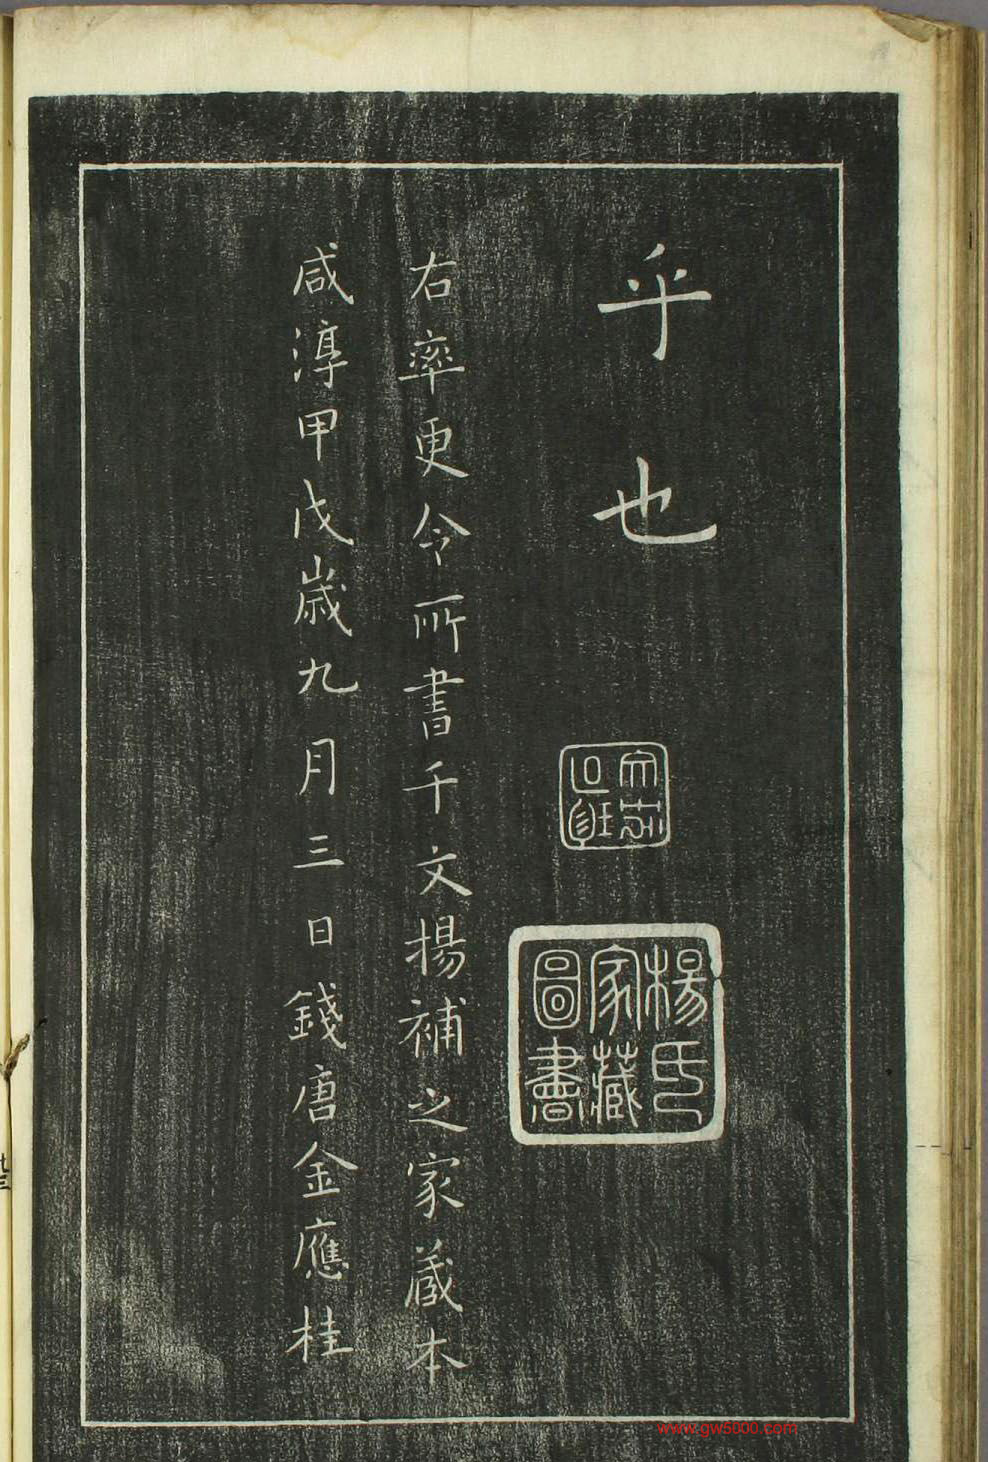 乎也
楊氏家藏圖書
右率更令所書千文揚補之家藏本
咸淳甲戌歲九月三日錢唐金應桂
www.gw5000.com